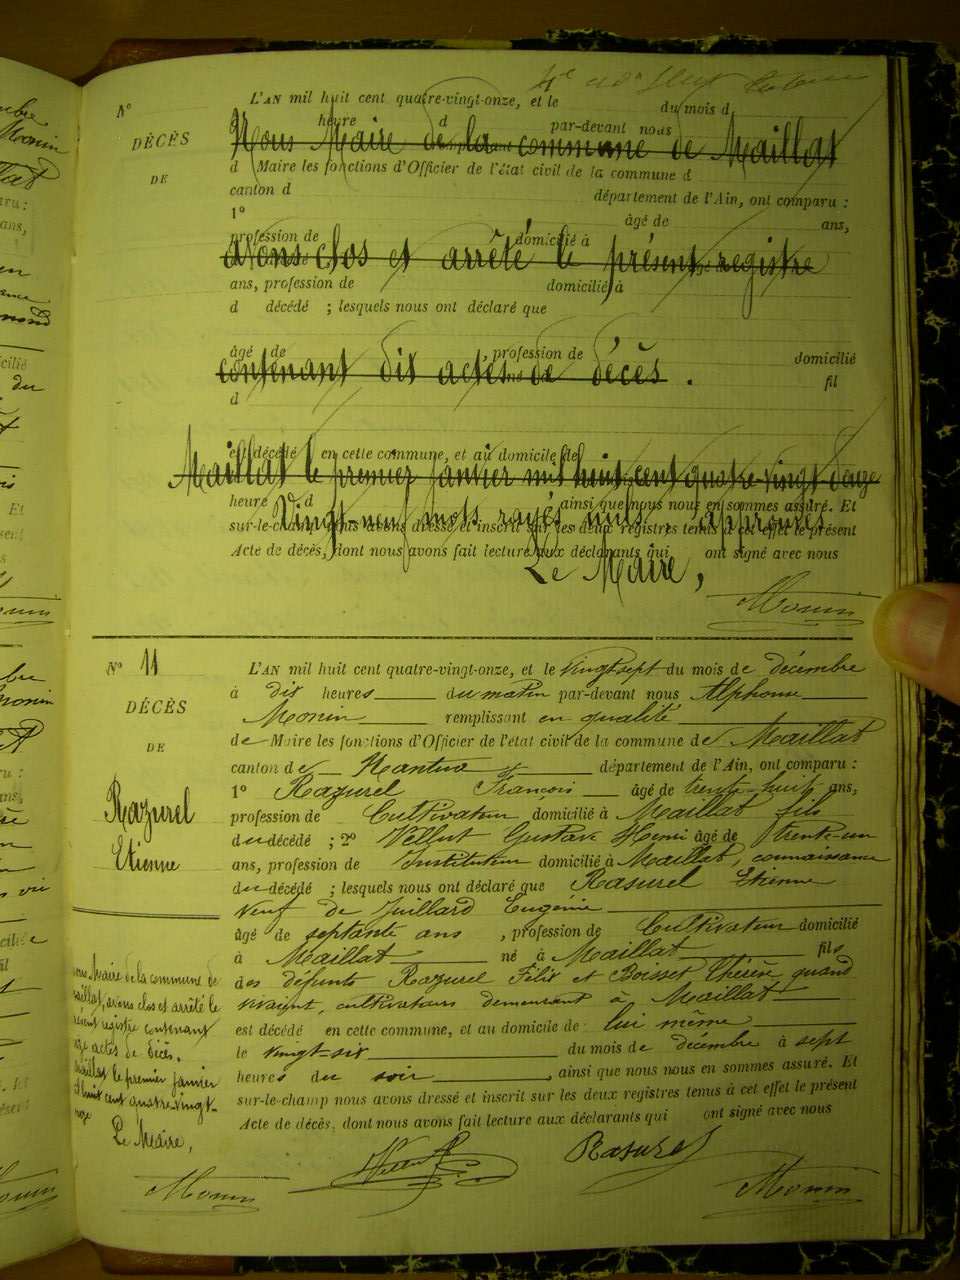 N°
DÉCÈS
DE
L'AN mil huit cent quatre-vingt-onze, et le du mois d
heure d par-devant nous
Nous Maire de la commune de Maillat
d Maire les fonctions d'Officier de l'état civil de la commune d
canton d département de l'Ain, ont comparu :
1° âgé de ans,
profession de domicilié à
avons clos et arrêté le présent registre
ans, profession de domicilié à
d décédé ; lesquels nous ont déclaré que
âgé de , profession de domicilié
contenant dix actes de décès .
fil
d
est décédé en cette commune, et au domicile de
Maillat le premier janvier mil huit cent quatre-vingt-douze
heure d ainsi que nous nous en sommes assuré. Et
Vingt neuf mots rayés nuls, approuvés
sur-le-champ nous avons dressé et inscrit sur les deux registres tenus à cet effet le présent
Acte de décès, dont nous avons fait lecture aux déclarants qui ont signé avec nous
Le Maire,
Monin
N° 11
DÉCÈS
DE
Razurel
Etienne
L'AN mil huit cent quatre-vingt-onze, et le vingt sept du mois de décembre
à dix heures du matin par-devant nous Alphonse
Monin remplissant en qualité
de Maire les fonctions d'Officier de l'état civil de la commune de Maillat
canton de Nantua département de l'Ain, ont comparu :
1° Razurel François âgé de trente-huit ans,
profession de Cultivateur domicilié à Maillat fils
du décédé ; 2° Gustave Henri âgé de trente-un
ans, profession de Instituteur domicilié à Maillat, connaissance
du décédé ; lesquels nous ont déclaré que Rasurel Etienne
veuf de Juillard Eugénie
âgé de septante ans , profession de Cultivateur domicilié
à Maillat né à Maillat fils
des défunts Razurel Félix et Boisset Thérèse quand
vivaient, cultivateurs demeurant à Maillat
est décédé en cette commune, et au domicile de lui même
le vingt-six du mois de décembre à sept
heures du soir , ainsi que nous nous en sommes assuré. Et
sur-le-champ nous avons dressé et inscrit sur les deux registres tenus à cet effet le présent
Acte de décès, dont nous avons fait lecture aux déclarants qui ont signé avec nous
Rasurel
Monin
Maire de la commune de
avons clos et arrêté le
registre contenant
actes de décès.
le premier janvier
huit cent quatre-vingt-
Le Maire,
Monin